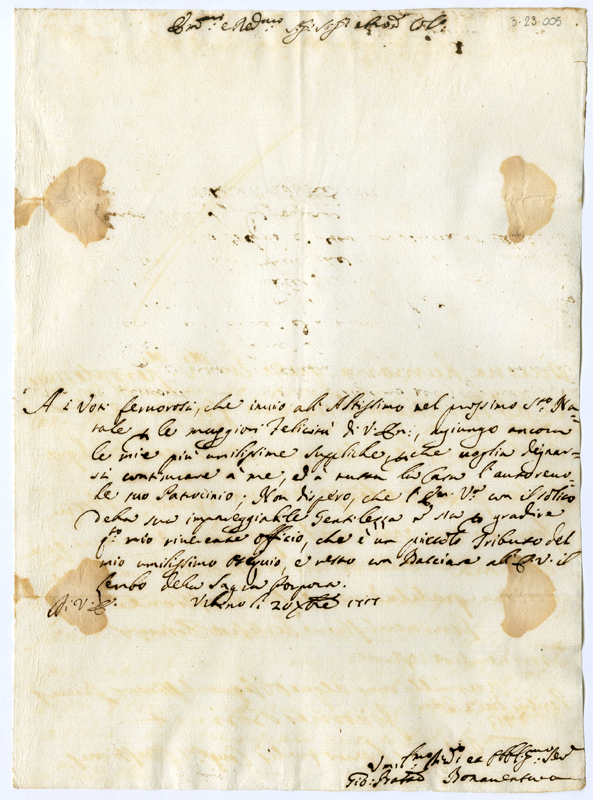 Em.mo e Re.mo Sig.r Sig.r e Pron. Col.
3-23-005
A i Voti fervorosi, che invio all'Altissimo nel prossimo S.to Na-
tale p le maggiori felicità di V. Em:, agiungo ancora
le mie più umilissime suppliche, che voglia degnar-
si continuare à me, ed à tutta la Casa l'autorevo-
le suo Patrocinio. Non dispero, che l'Em. V.ra con il solito
della sua impareggiabile Gentilezza
q.to mio riverente officio, che è un piccolo Tributo del
mio umilissimo Ossequio, e resto con Bacciare all'E. V. il
lembo della Sagra Porpora.
Di V. E.
li 20 Xbre 1717
Um.mo e Obblig.mo Ser.
Gio: Batta Bonaventura